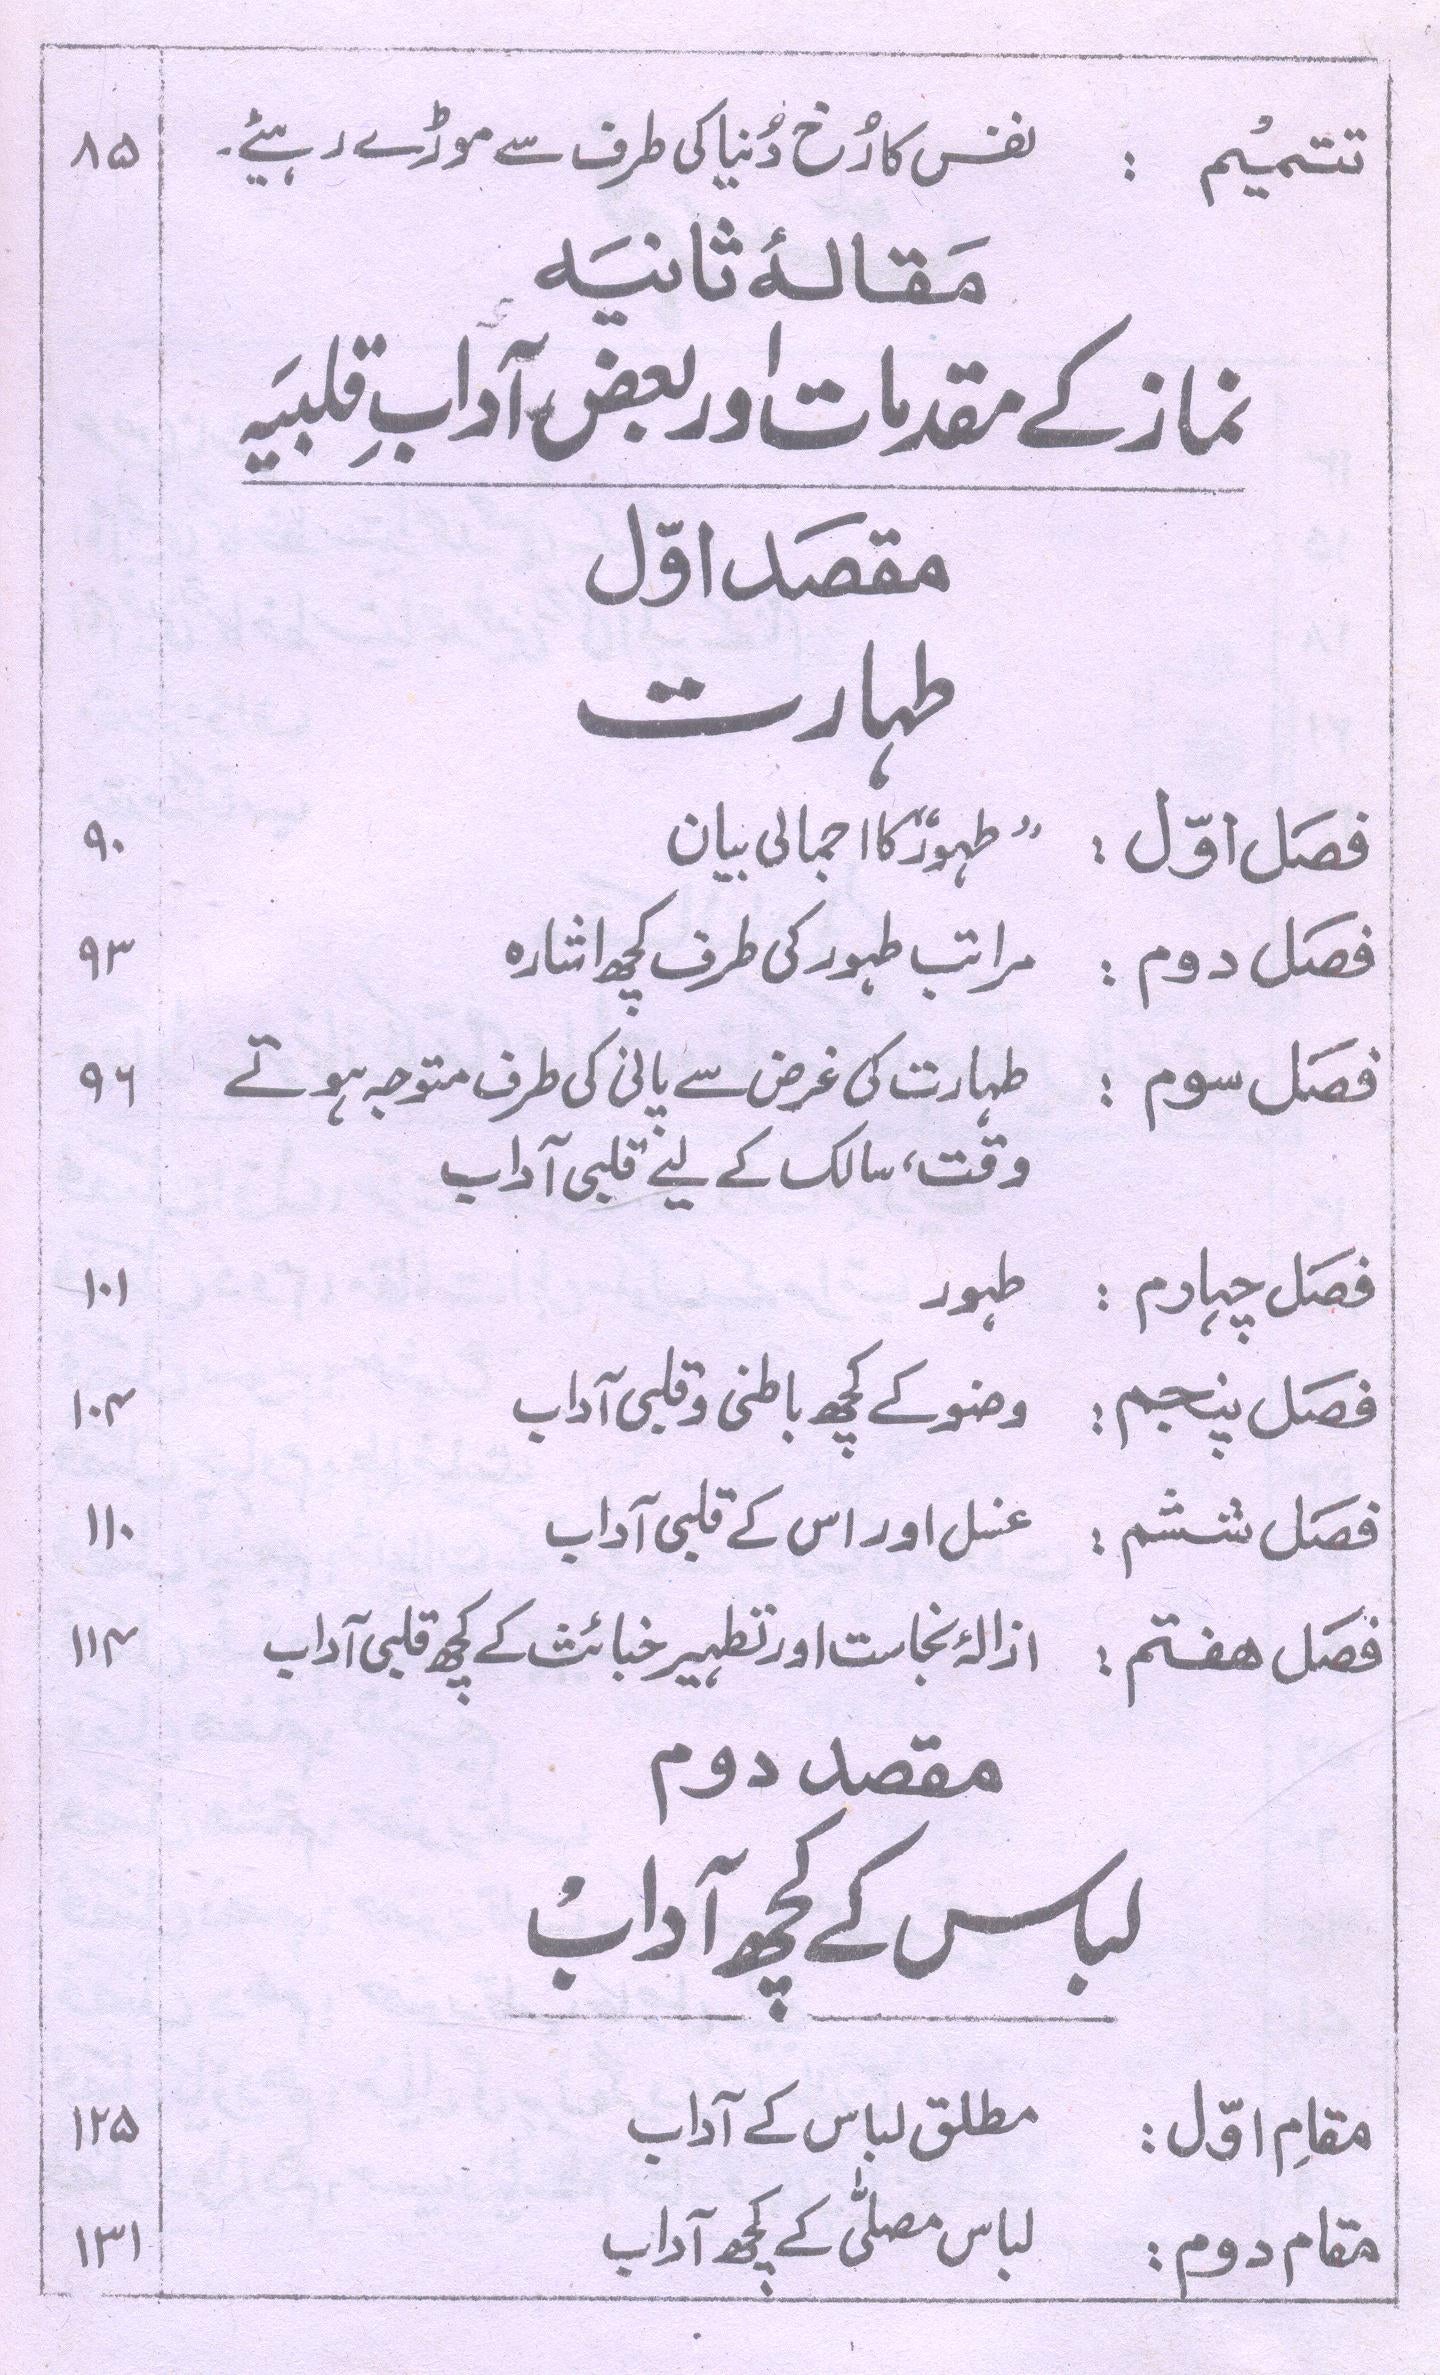 تتمیم : نفس کا رُخ دُنیا کی طرف سے موڑے رہیئے۔ ۸۵
مَقالۂ ثانیَہ
نماز کے مقدمات اور بعض آدابِ قلبیَہ
مقصَد اوّل
طہارت
فصَل اوّل : ”طہور“ کا اجمالی بیان ۹۰
فصَل دوم : مراتب طہور کی طرف کچھ اشارہ ۹۳
فصَل سوم : طہارت کی غرض سے پانی کی طرف متوجہ ہوتے ۹۶
وقت، سالک کے لیئے قلبی آداب
فصَل چہارم : طہور ۱۰۱
فصَل پنجم : وضو کے کچھ باطنی و قلبی آداب ۱۰۴
فصَل ششم : غسل اور اس کے قلبی آداب ۱۱۰
فصَل ھفتم : ازالۂ نجاست اور تطہیر خبائث کے کچھ قلبی آداب ۱۱۴
مقصد دوم
لباس کے کچھ آداب
مقامِ اوّل : مطلق لباس کے آداب ۱۲۵
مقام دوم : لباس مصلّٰی کے کچھ آداب ۱۳۱